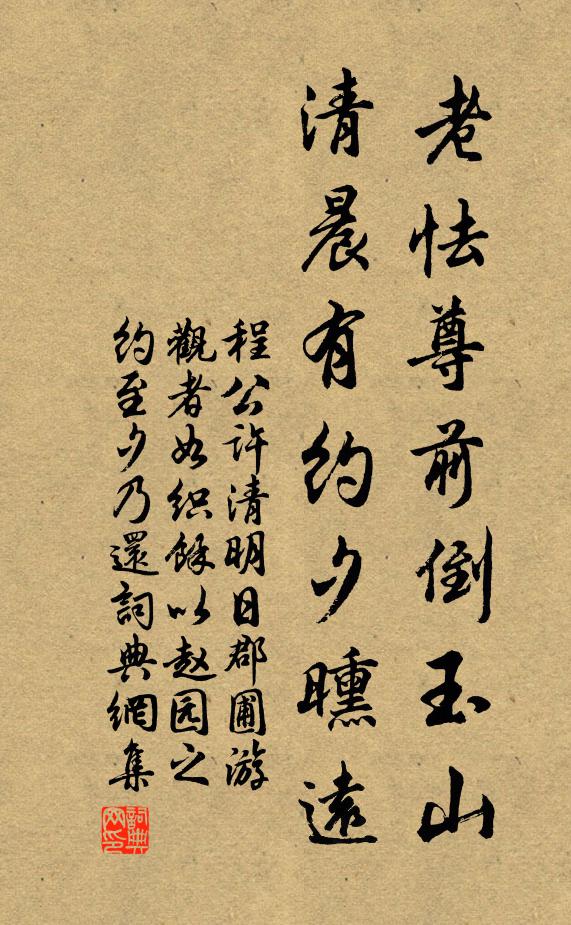 老怯尊前倒玉山
清晨有約夕曛遠
程公许清明日郡圃游
觀者如織餘以赵园之
約至夕乃還詞典網集
詞典网印